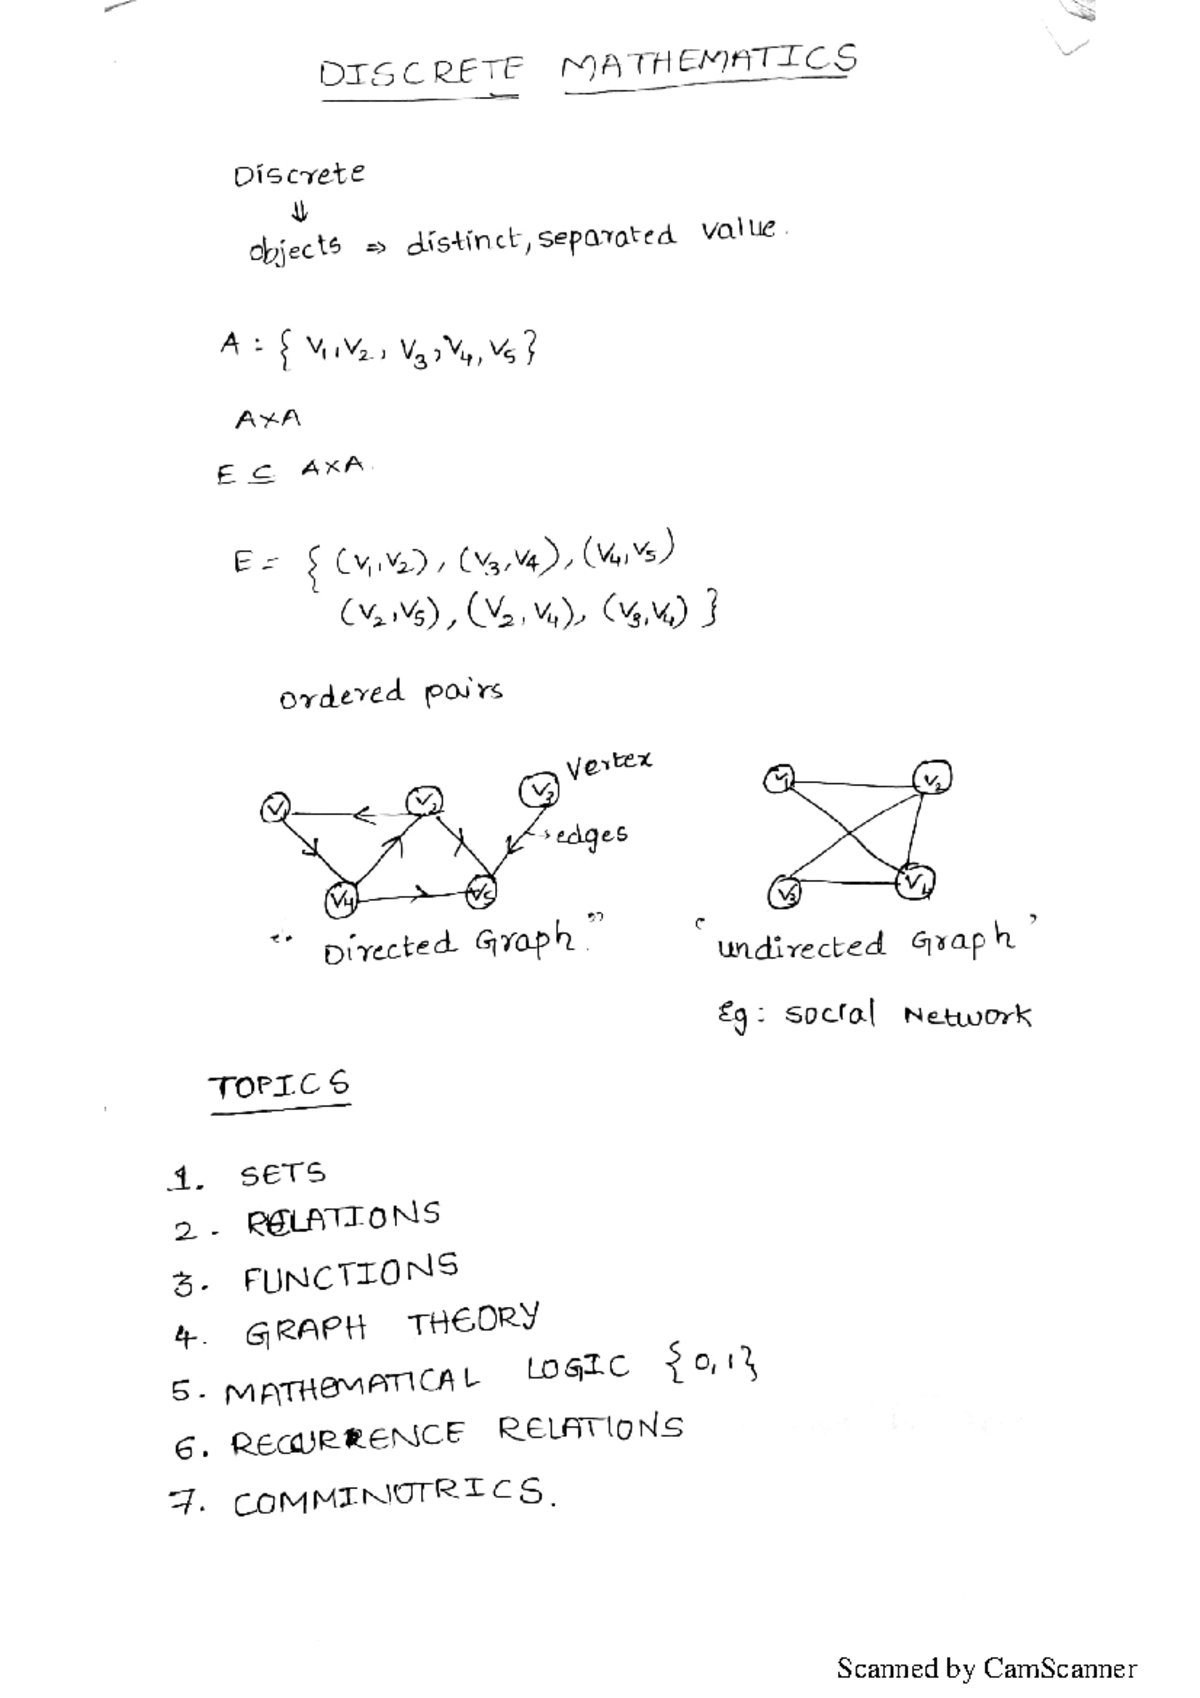 DISCRETE MATHEMATICS
Discrete
⇓
objects ⇒ distinct, separated value.
A : { V1, V2, V3, V4, V5 }
A×A
E ⊆ A×A.
E = { (V1, V2), (V3, V4), (V4, V5)
(V2, V5), (V2, V4), (V3, V4) }
ordered pairs
V1 V2 V3 Vertex
→ edges
V4 V5
V1 V2
V3 V4
" Directed Graph."
' undirected Graph '
Eg: social Network
TOPICS
1. SETS
2. RELATIONS
3. FUNCTIONS
4. GRAPH THEORY
5. MATHEMATICAL LOGIC {0,1}
6. RECURRENCE RELATIONS
7. COMMINOTRICS.
Scanned by CamScanner